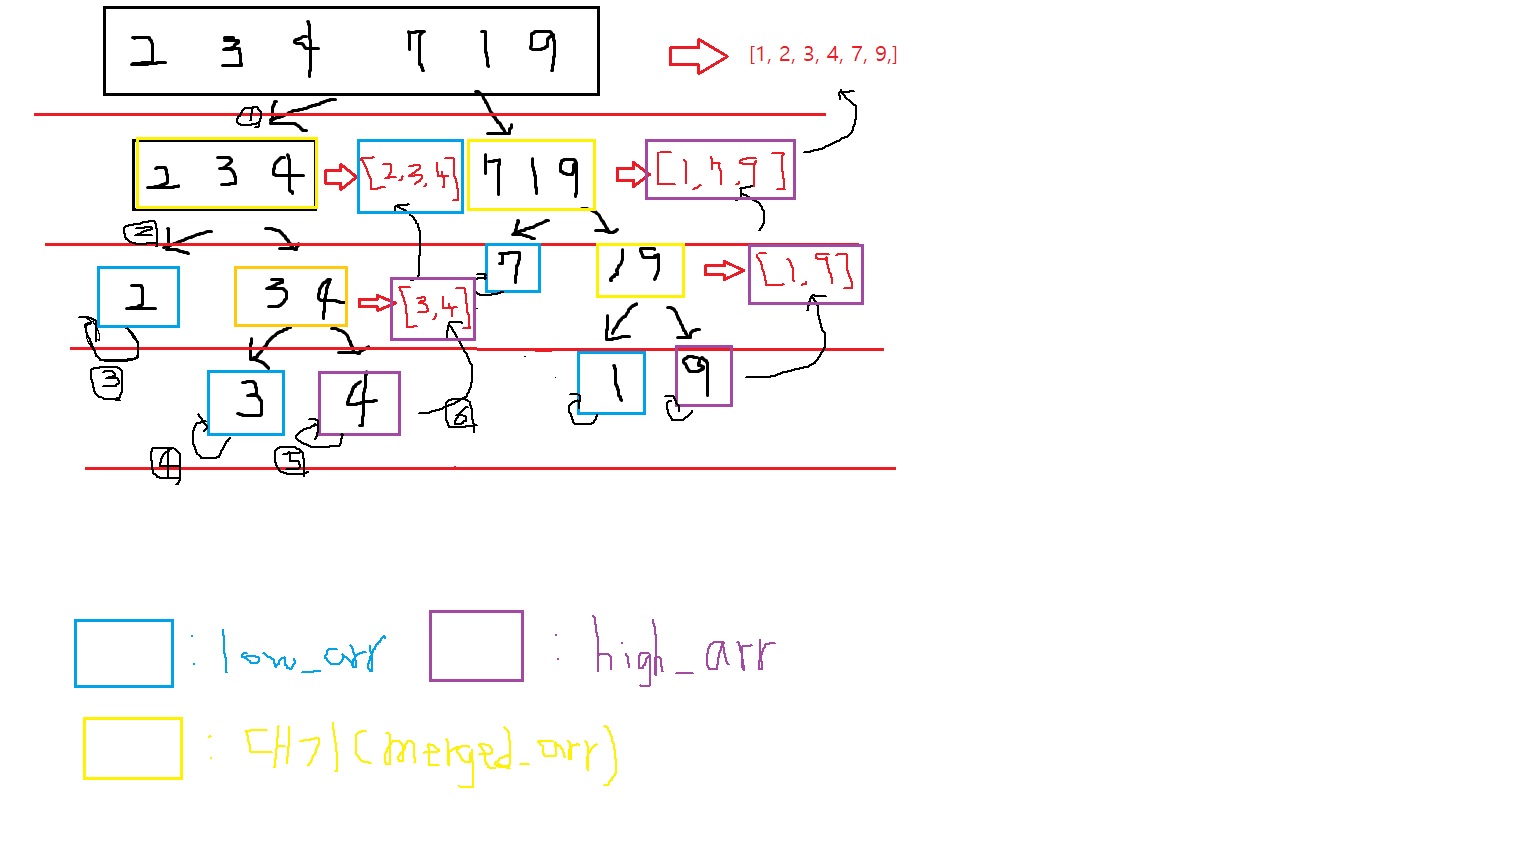 2 3 4 7 1 9 [1, 2, 3, 4, 7, 9,]
①
2 3 4 [2,3,4] 7 1 9 [1,7,9]
2
2 3 4 [3,4] 7 1 9 [1,9]
3
3 4 6 1 9
4 5
: low_arr : high_arr
: 대기(merged_arr)